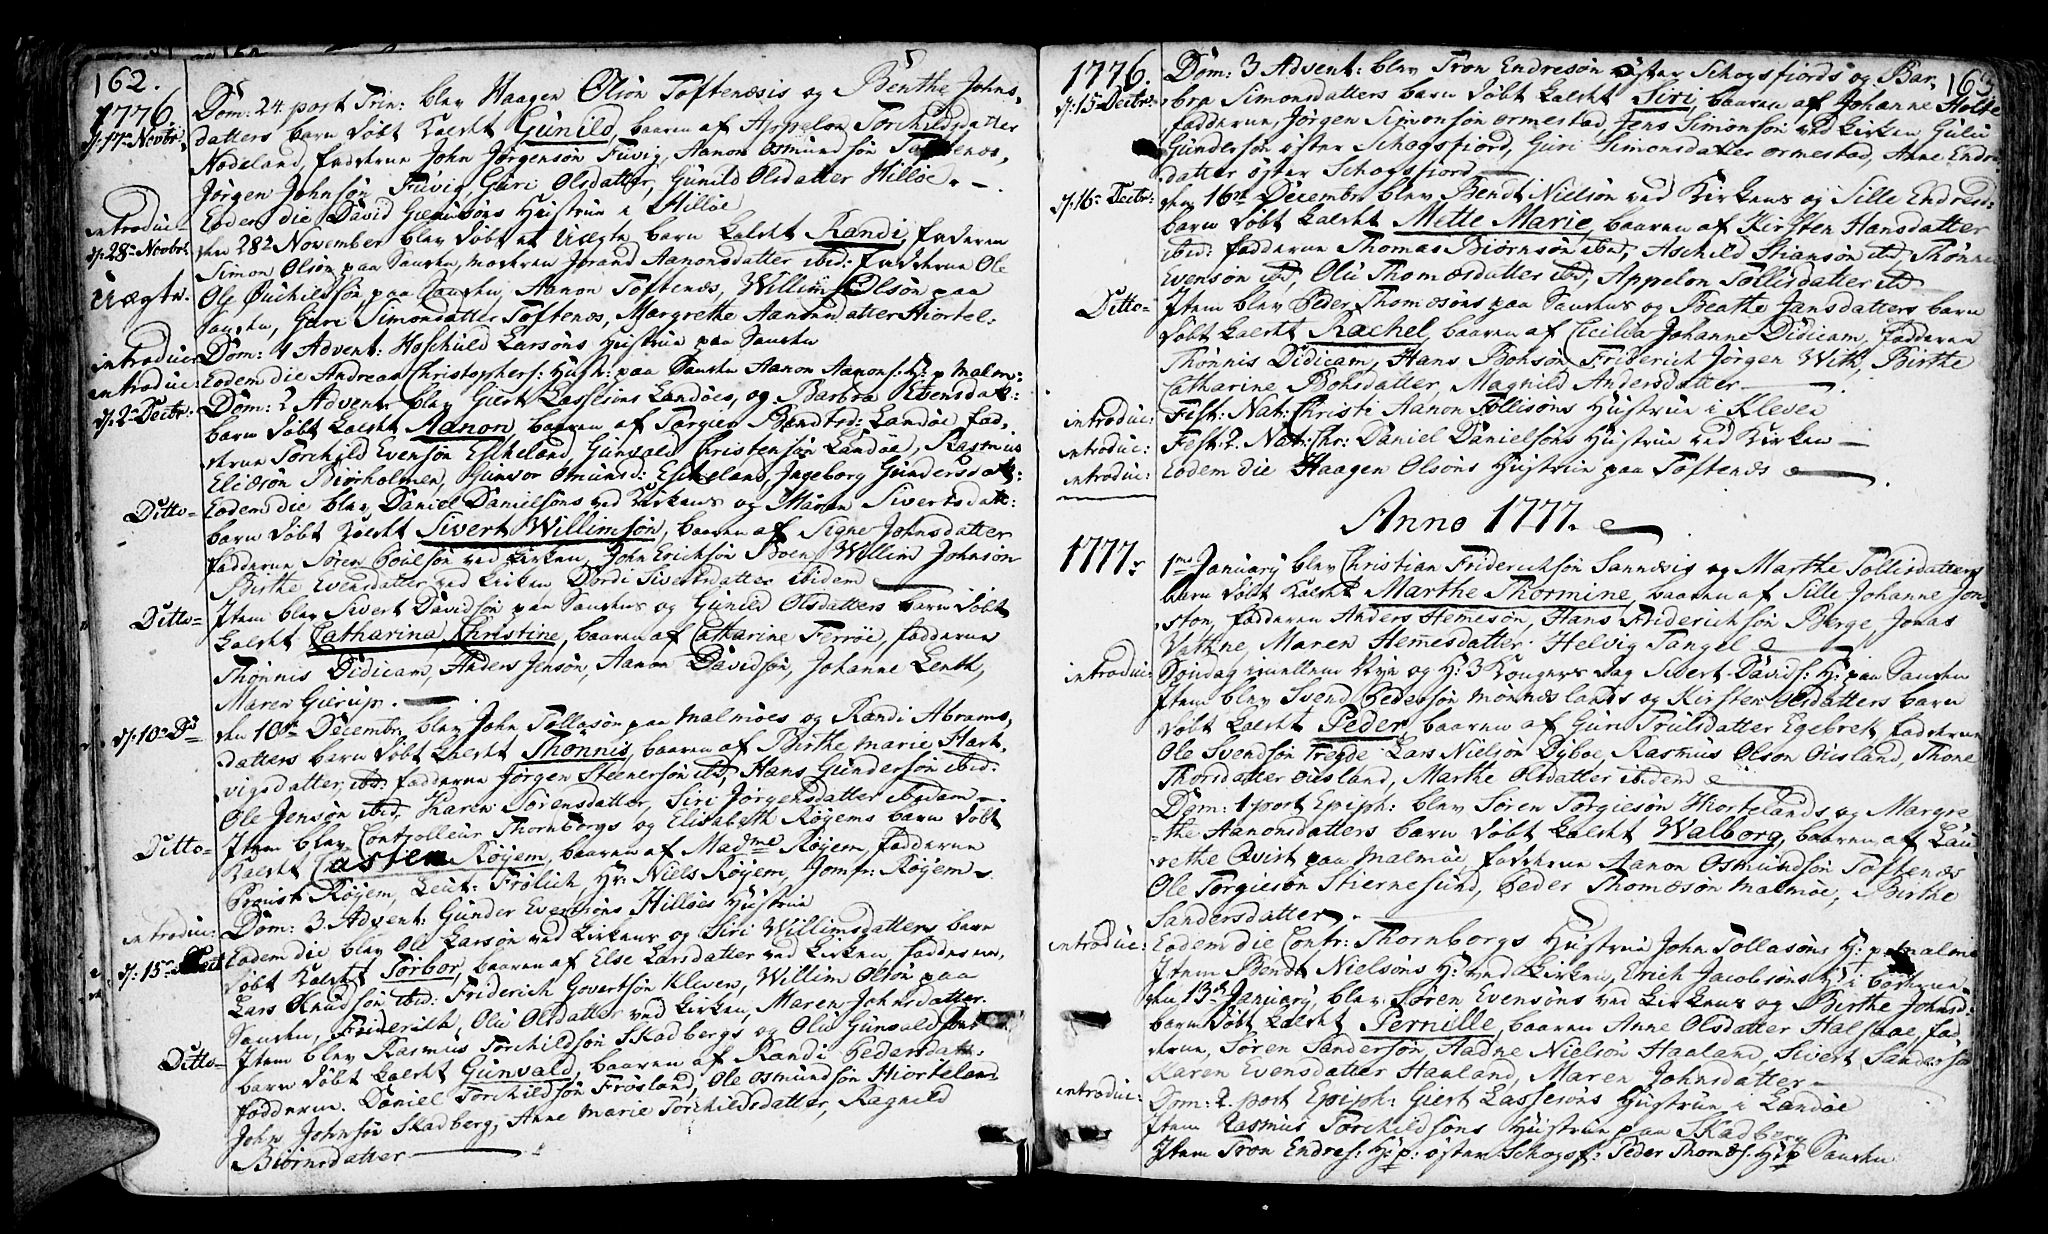 162.
1776.
d: 17de Novbr:
Dom: 24 post Trin: blev Haagen Olsön Toftenæsis og Benthe Johns,
datters barn döbt kaldet Günild, baaren af Appelon Torchildsdatter
Hodeland, fadderne John Jörgensön Füvig, Aanon Osmundsön Toftenæs,
Jörgen Johnsön Füvig, Güri Olsdatter, Günild Olsdatter Hillöe.
introduc:
Eodem die David Hüstrue i Hillöe
d: 28 Novbr:
den 28de November blev döbt et Uægte barn kaldet Randi, faderen
Uægte.
Simon Olsön paa Sanden, moderen Jorand Aanonsdatter ibid: fadderne Ole
Ole paa Sanden, Aanon Toftenæs, Willum Olsön paa
Sanden, Güri Simonsdatter Toftenæs, Margrethe Aanonsdatter Hiortel:
introduc:
Dom: 1 Advent: Larsöns Hustrue paa Sanden
introduc:
Eodem die Andreas Christophers: Hustr: paa Sanden Aanon Aanons: H: p Malm:
d: 2 Decbr:
Dom: 2 Advent blev Giert Lassesöns Landöes, og Barbra Evensdatt:
barn döbt kaldet Aanon, baaren af Torgier Landöe fad,
derne Torchild Evensön Eskeland, Günvald Christensön Landöe, Rasmus
Eliesön Biörholmen, Günvor Omunsd: Eskeland, Ingeborg Gündersdatt:
Ditto-
Eodem die blev Daniel Danielsöns ved Kirkens og Maren Sivertsdatt:
barn döbt kaldet Sivert Willimsön, baaren af Signe Johnsdatter
fadderne Sören Poulsön ved Kirken, John Erichsön Willim Johnsön
Birthe Evensdatter ved Kirken Dordi Sivertsdatter ibidem
Ditto-
Item blev Sivert Davidsön paa Sandens og Günild Olsdatters barn döbt
kaldet Catharina Christine, baaren af Catharine Ferröe, fadderne
Thönnis Didicam, Anders Jensön, Aanon Davidsön, Johanne Lenth,
Maren Gierup.
d: 10de Do
den 10de Decembr. blev John Tollasön paa Malmöes og Randi Abrams,
datters barn döbt kaldet Thönnis, baaren af Birthe Marie Hart,
vigsdatter, fadderne Jörgen Steenersön ibd, Hans Gündersön ibid:
Ole Jensön ibid, Karen Sörensdatter, Siri Jörgensdatter ibidem
Ditto-
Item blev Controlleur Thornborgs og Elisabeth Röyems barn döbt
kaldet Casten Röyem, baaren af Madme Röyem, fadderne
Proust Röyem, Leut: Frölich, Hr: Niels Röyem, Jomfr: Röyem.
introduc:
Dom: 3 Advent: Günder Evensöns Hillöes Hustrue
d: 15de
Eodem die blev Ole Larsön ved Kirkens og Siri Willimsdatters barn
döbt kaldet Torbor, baaren af Else Larsdatter ved Kirken, fadderne,
Lars Knudsön ibid: Friderich Govertsön Kleven, Willim Olsön paa
Sanden, Friderich, Oliv Olsdatter ved Kirken, Maren Johnsdatter.
Ditto-
Item blev Rasmus Torchildsön Skadbergs og Oliv Günvaldsdat
barn döbt kaldet Günvald, baaren af Randi Pedersdatt:
fadderne. Daniel Torchildsön Frösland, Ole Osmundsön Hiorteland
John Johnsön Skadberg, Anne Marie Torchildsdatter, Ragnild
Biörnsdatter
163
1776.
d: 15 Decbr:
Dom: 3 Advent: blev Tron Endresön öster Schogsfjords og Bar,
bra Simonsdatters barn döbt kaldet Siri, baaren af Johanne Holte
fadderne, Jörgen Simonsön ormestad, Jens Simonsön ved Kirken Güli
Gündersön öster Schogsfjord, Güri Simonsdatter ormestad, Anne Endre
datter öster Schogsfjord
d: 16 Decbr:
den 16de Decembr blev Bendt Nielsön ved Kirkens og Sille Endresd:
barn döbt kaldet Mette Marie, baaren af Kirsten Hansdatter
ibid: fadderne Thomas Biörnsön ibd, Aschild Stiansön ibd, Thönni
Evensön ibd, Oliv Thomæsdatter ibd, Appelon Tollisdatter ibd
Ditto-
Item blev Peder Thomesöns paa Sandens og Benthe Jansdatters barn
döbt kaldet Rachel, baaren af Cecilia Johanne Didicam, fadderne
Thönnis Didicam, Hans Bohsön, Friderich Jörgen With, Birthe
Catharine Bohsdatter, Magnild Andersdatter
introduc:
Fest: Nat: Christi Aanon Tollisöns Hustrue i Kleven
introduc:
Fest: 2. Nat: Chr: Daniel Danielsöns Hustrue ved Kirken
introduc:
Eodem die Haagen Olsöns Hustrue paa Toftenæs
Anno 1777.
1777.
1ne January blev Christian Friderichsön Sannæsis og Marthe Tollisdatters
barn döbt kaldet Marthe Thormine, baaren af Sille Johanne Jon,
ston, fadderne Anders Hemesön, Hans Friderichsön Berge, Jonas
Vatne, Maren Hemesdatter. Helvig Tangel
introduc:
Söndag imellem Nye og H: 3 Kongers Dag Sivert Davids: H: paa Sanden
Item blev Svend Pedersön Mönneslands og Kirsten Olsdatters barn
döbt kaldet Peder, baaren af Güri Trülsdatter Egebret, fadderne
Ole Svendsön Tregde Lars Nielsön Dyboe, Rasmus Olson Öüsland, Thone
Thorsdatter Öüsland, Marthe Olsdatter ibidem
Dom: 1 post Epiph: blev Sören Torgiesön Hiortelands og Margre
the Aanonsdatters barn döbt kaldet Walborg, baaren af Lau
rethe Qvist paa Malmöe, fadderne Aanon Osmundsön Toftenæs
Ole Torgiesön Stiernesund, Peder Thomæsön Malmöe, Birthe
Sandersdatter.
introduc:
Eodem die Contr: Thornborgs Hustrue John Tollasöns H: p Malmö
Item Bendt Nielsöns H: ved Kirken, Erich Jacobsöns H: i
den 13de January blev Sören Evensöns ved Kirkens og Birthe Johnsd:
barn döbt kaldet Pernille, baaren Anne Olsdatter Halsaae, fad,
derne, Sören Sandersön, Aadne Nielsön Haaland, Sivert Sandersön
Karen Evensdatter Haaland, Maren Johnsdatter
introduc:
Dom: 2. post Epiph: Giert Lassesöns Hustrue i Landöe
Item Rasmus Torchildsöns Hustrue paa Skadberg
Item Tron Endres: H: p: öster Schogsf: Peder Thomæs: H: p Sanden